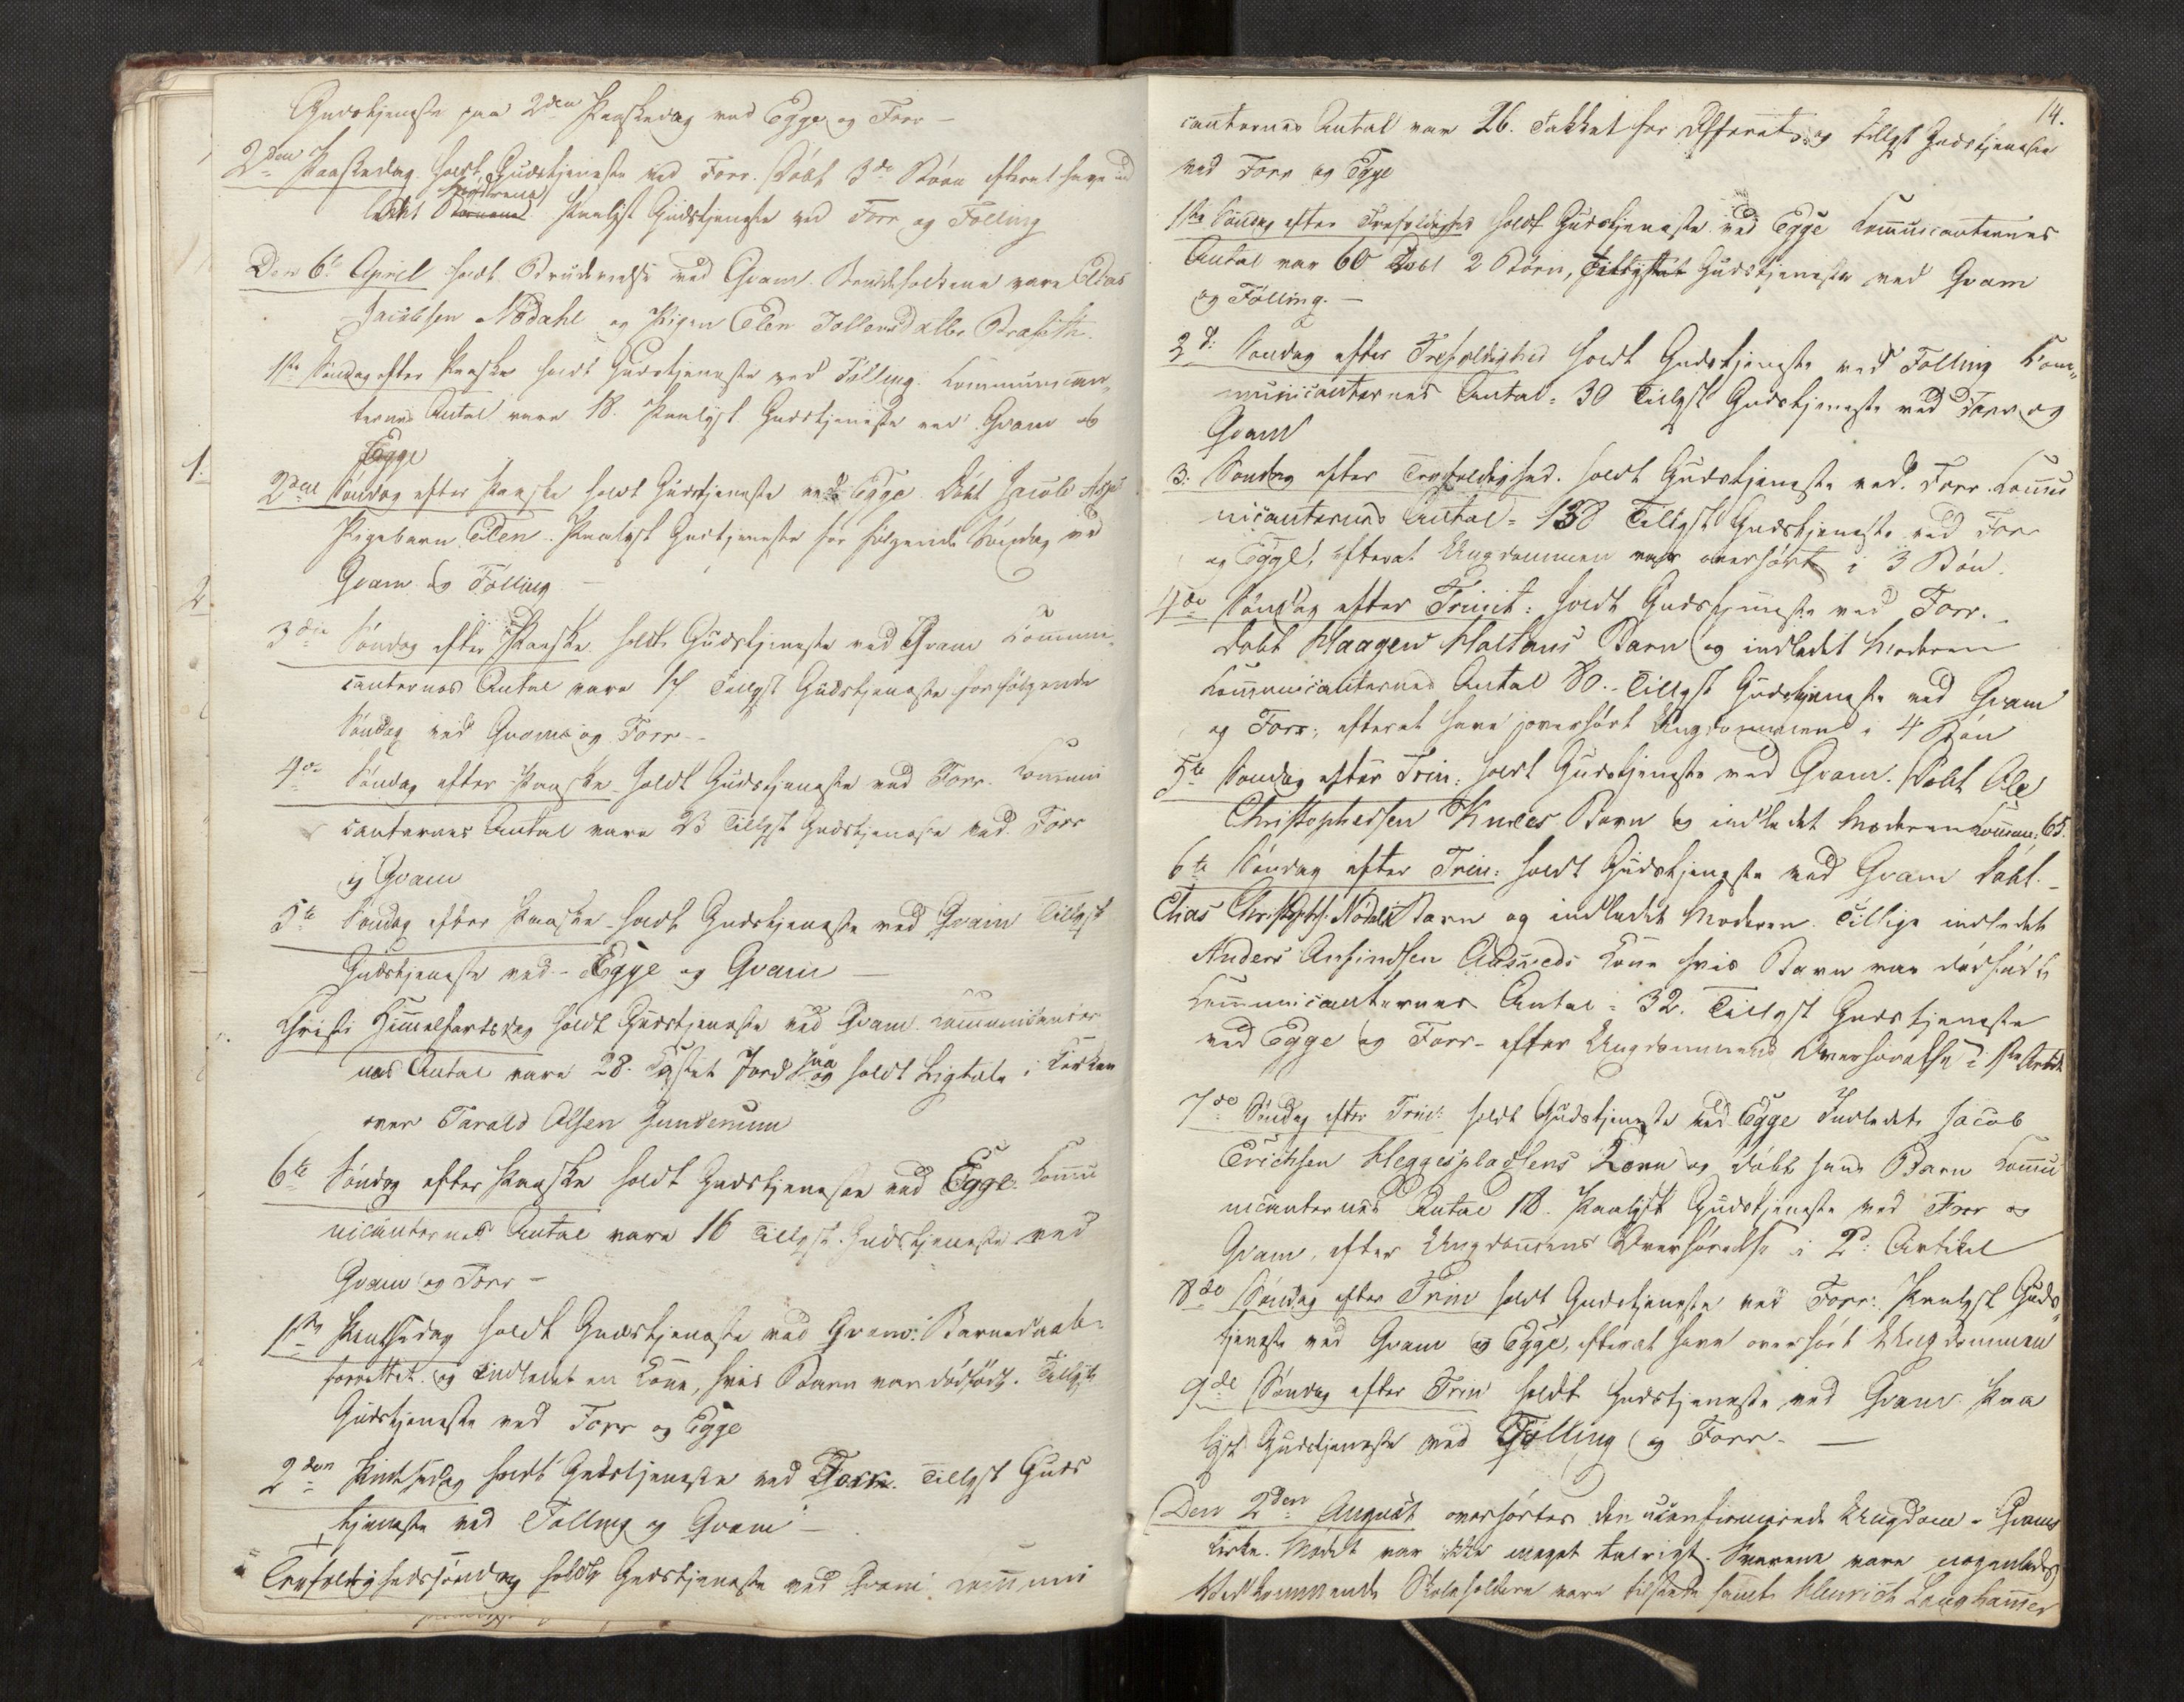 Gudstjeneste paa 2den Paaskedag ved Egge og Forr –
2den Paaskedag holdt Gudstjeneste ved Forr. Døbt 3de Børn efterat have ind
ledet Mødrene Paalyst Gudstjeneste ved Forr og Følling
Den 6te April holdt Brudevielse ved Qvam. Brudefolkene vare Elias
Jacobsen Nödahl og Pigen Elen Tollevsdatter
1ste Søndag efter Paaske holdt Gudstjeneste ved Følling. Kommunican-
ternes Antal vare 18. Paalyst Gudstjeneste ved Qvam og
Egge
1.
2den Søndag efter Paaske holdt Gudstjeneste ved Egge. Døbt Jacob
Pigebarn Elen. Paalyst Gudstjeneste for følgende Søndag ved
Qvam og Følling –
2
3die Søndag efter Paaske holdt Gudstjeneste ved Qvam Kommuni-
canternes Antal vare 17. Tillyst Gudstjeneste for følgende
Søndag ved Qvam og Forr –
4de Søndag efter Paaske holdt Gudstjeneste ved Forr. Kommuni
canternes Antal vare 23 Tillyst Gudstjeneste ved Forr
og Qvam
5te Søndag efter Paaske holdt Gudstjeneste ved Qvam Tillyst
Gudstjeneste ved Egge og Qvam –
Christi Himmelfartsdag holdt Gudstjeneste ved Qvam. Kommunicanter
nes Antal vare 28. Kastet Jord paa og holdt Ligtale i Kirken
over Tarald Olsen
6te Søndag efter Paaske holdt Gudstjeneste ved Egge. Kommu
nicanternes Antal vare 16 Tillyst Gudstjeneste ved
Qvam og Forr –
1ste Pintsedag holdt Gudstjeneste ved Qvam. Barnedaab
forrettet og indledet en Kone, hvis Barn var dødfødt. Tillyst
Gudstjeneste ved Forr og Egge
2den Pintsedag holdt Gudstjeneste ved Forr. Tillyst Guds
tjeneste ved Følling og Qvam –
Trefoldighedssøndag holdt Gudstjeneste ved Qvam Kommuni
14.
canternes Antal var 26. Takket for Offeret og tillyst Gudstjeneste
ved Forr og Egge
1ste Søndag efter Trefoldighed holdt Gudstjeneste ved Egge Kommunicanternes
Antal var 60 Døbt 2 Børn, Tillyst Gudstjeneste ved Qvam
og Følling. –
2d: Søndag efter Trefoldighed holdt Gudstjeneste ved Følling Kom-
municanternes Antal = 30 Tillyst Gudstjeneste ved Forr og
Qvam
3: Søndag efter Trefoldighed. holdt Gudstjeneste ved. Forr. Kommu
nicanternes Antal = 138 Tillyst Gudstjeneste ved Forr
og Egge, efterat Ungdommen var overhørt i 3 Bøn.
4de Søndag efter Trinit: holdt Gudstjeneste ved Forr.
Døbt Haagen Barn og indledet Moderen
Kommunicanternes Antal 80. Tillyst Gudstjeneste ved Qvam
og Forr, efterat have overhørt Ungdommen i 4 Bøn
5te Søndag efter Trin: holdt Gudstjeneste ved Qvam. Døbt Ole
Christophersen Barn og indledet Moderen Kommu: 65.
6te Søndag efter Trin: holdt Gudstjeneste ved Qvam døbt
Elias Nödals Barn og indledet Moderen. Tillige indledet
Anders Kone hvis Barn var dødfødt
Kommunicanternes Antal = 32. Tillyst Gudstjeneste
ved Egge og Forr – efter Ungdommens Overhørelse i 1ste Artik
7de Søndag efter Trin: holdt Gudstjeneste ved Egge Indledet Jacob
Erichsen Heggespladsens Kone og døbt hans Barn Kommu
nicanternes Antal 18. Paalyst Gudstjeneste ved Forr og
Qvam, efter Ungdommens Overhørelse i 2d: Artikel
8de Søndag efter Trin holdt Gudstjeneste ved Forr. Paalyst Guds-
tjeneste ved Qvam og Egge, efterat have overhørt Ungdommen
9de Søndag efter Trin holdt Gudstjeneste ved Qvam. Paa
lyst Gudstjeneste ved Følling og Forr. –
Den 2den August overhørtes den uconfirmerede Ungdom i Qvams
Kirke. Mødet var ikke meget talrigt. Svarene vare nogenledes
Vedkommende Skoleholdere vare tilstede samt Henrich Langhammer